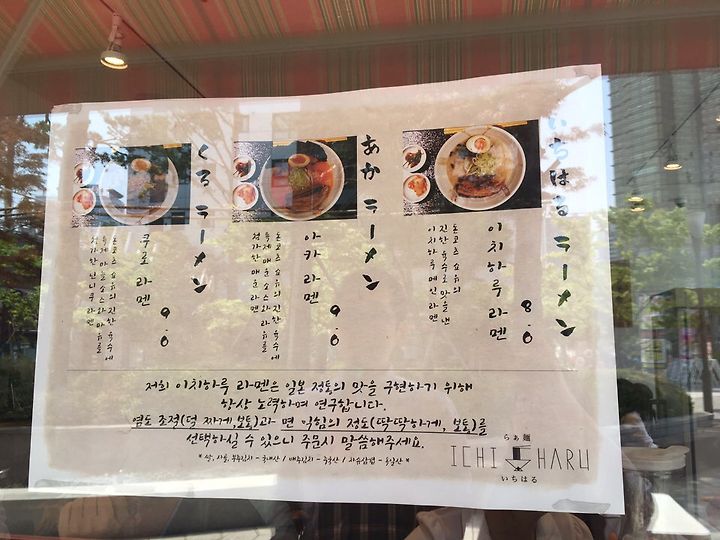 いちはる ラーメン
이치하루 라멘
8.0
돈코츠 쇼유의
진한 육수로 맛을 낸
이치하루 메인 라멘
あか ラーメン
아카 라멘
9.0
돈코츠 쇼유의 진한 육수에
특제 매운 소스와 라유를
첨가한 매운 라멘
くろ ラーメン
쿠로 라멘
9.0
돈코츠 쇼유의 진한 육수에
특제 마늘 소스와 마유를
첨가한 닌니쿠 라멘
저희 이치하루 라멘은 일본 정통의 맛을 구현하기 위해
항상 노력하며 연구합니다.
염도 조절(덜 짜게,보통)과 면 익힘의 정도(딱딱하게, 보통)를
선택하실 수 있으니 주문시 말씀해주세요.
* 쌀, 사골, 부추김치 - 국내산 / 배추김치 - 중국산 / 차슈삼겹 - 독일산
らぁ麺
ICHI HARU
いちはる